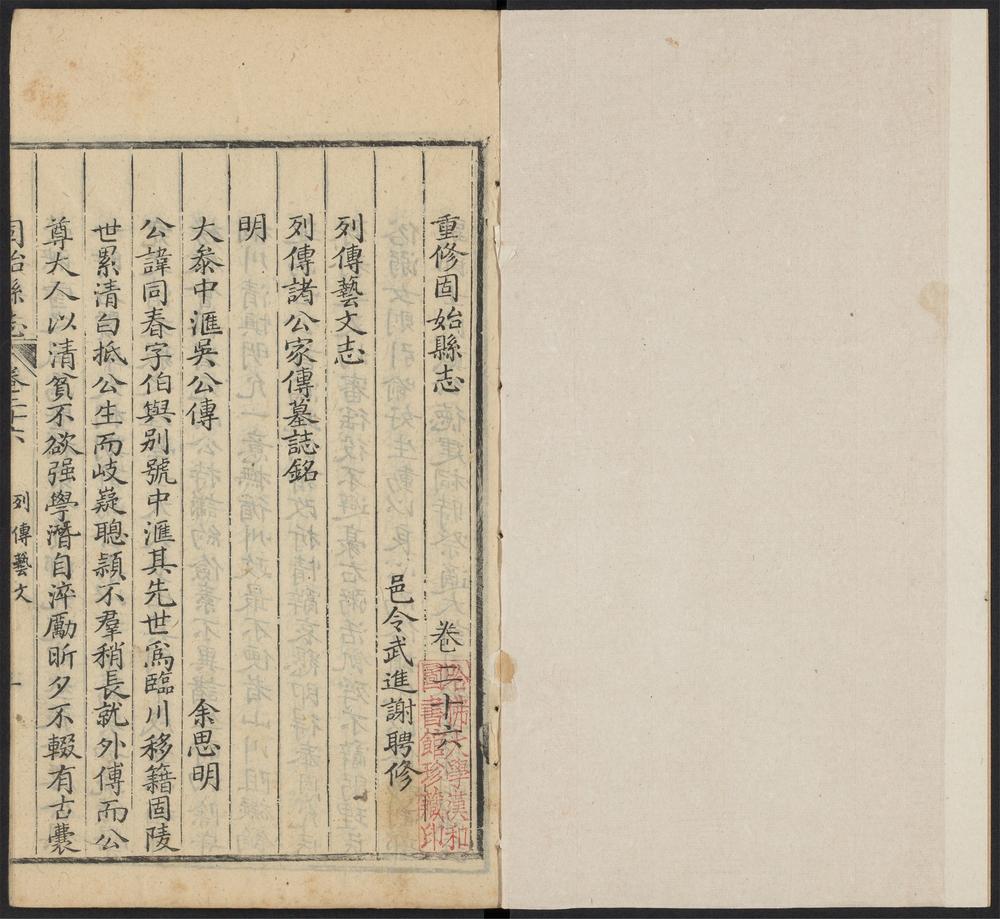 重修固始縣志 卷二十六
邑令武進謝聘修
列傳藝文志
列傳諸公家傳墓誌銘
明
大叅中滙吳公傳 余思明
公諱同春字伯與別號中滙其先世爲臨川移籍固陵
世累清白抵公生而岐嶷聰頴不羣稍長就外傅而公
尊大人以清貧不欲强學潛自淬勵昕夕不輟有古囊
固始縣志 卷二十六 列傳藝文 一
哈佛大學漢和圖書館珍藏印